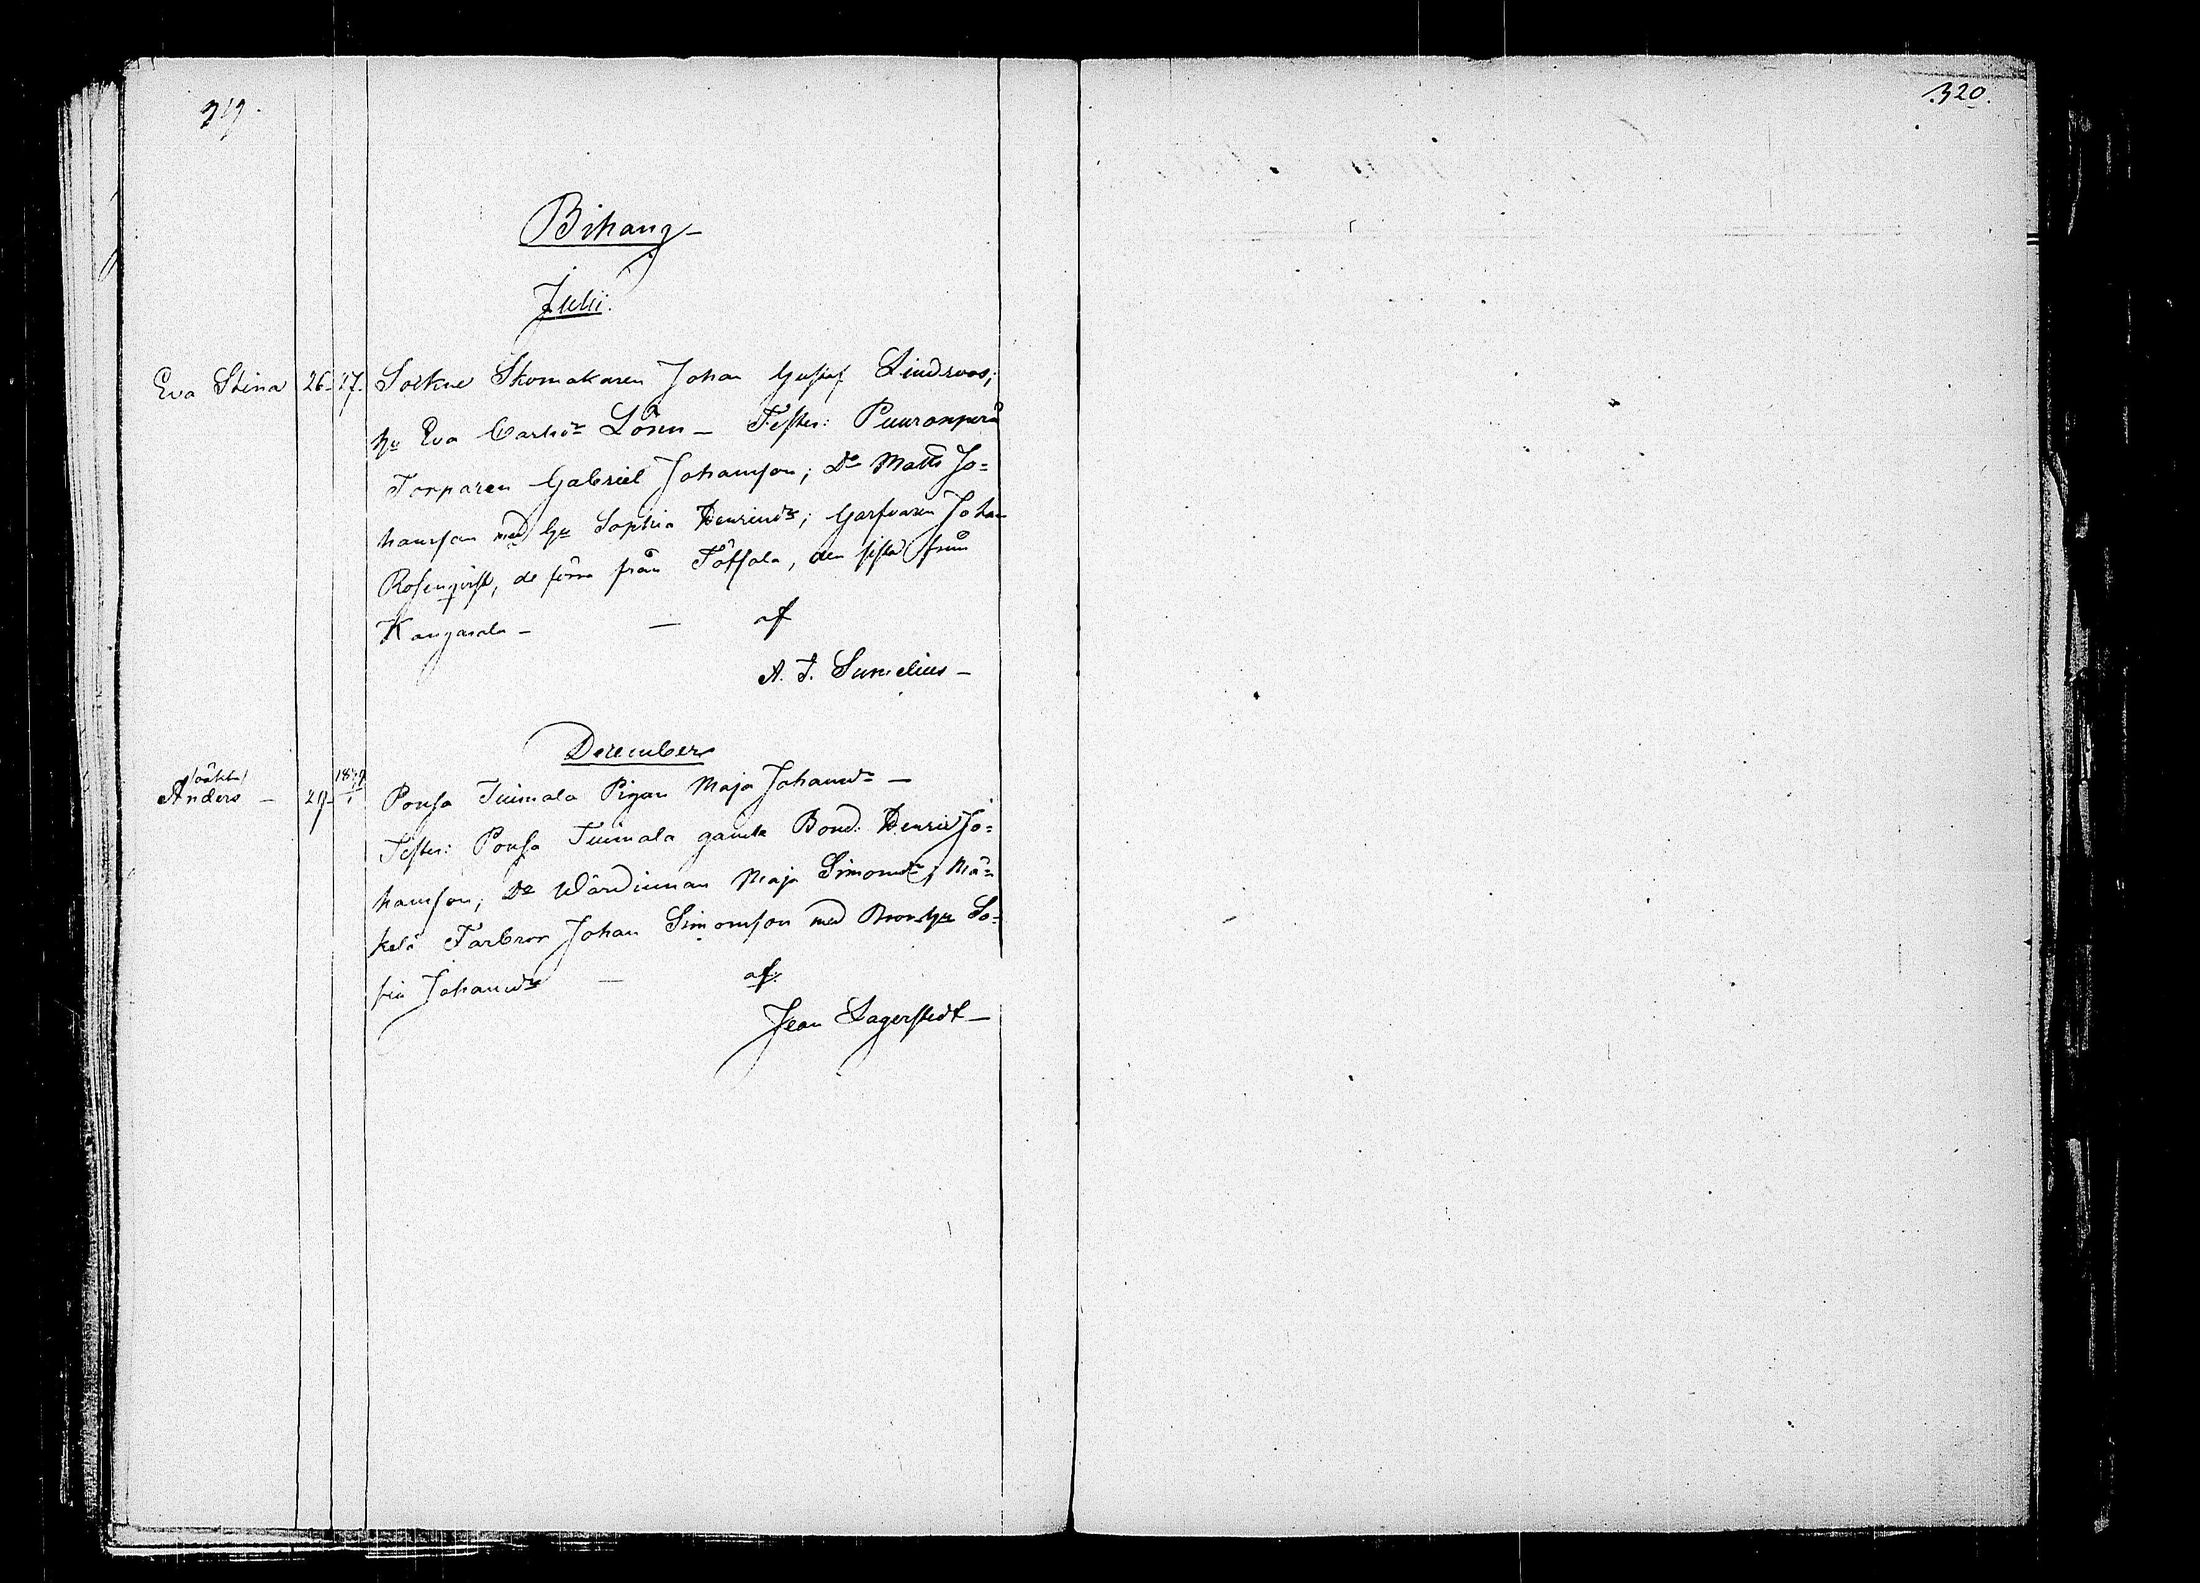 320.
Bihang
Julii.
Eva Stina 26. 27. Sockne Skomakaren Johan Gustaf Lindroos;
Hu Eva Carlsdr Lören – Testes: Puuronperä
Torparen Gabriel Johansson; Do Matts Jo=
hansson med hu Sophia Henricdr; Garfvaren Johan
Rosenqvist, de förra från Töfsala, den sista från
Kangasala – — af
A. J. Sumelius –
December
(oäkta)
Anders – 29. Ponsa Tuimala Pigan Maja Johansdr —
Testes: Ponsa Tuimala gamla Bond: Henric Jo=
hansson; Do Wärdinnan Maja Simonsdr; Mä=
kelä Farbror Johan Simonsson med hu So=
fia Johansdr — af
Jean Lagerstedt –